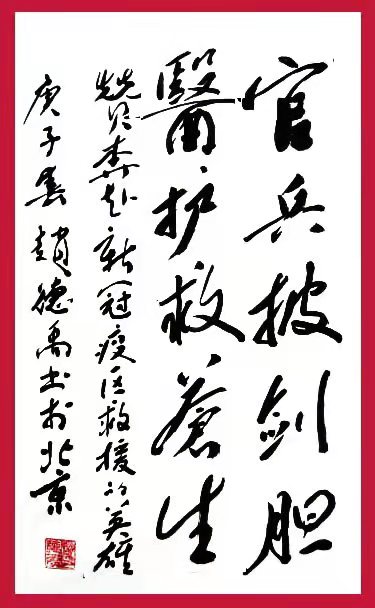 官兵披剑胆
醫护救蒼生
贊奔赴新冠疫区救援的英雄
庚子春趙德禹书於北京